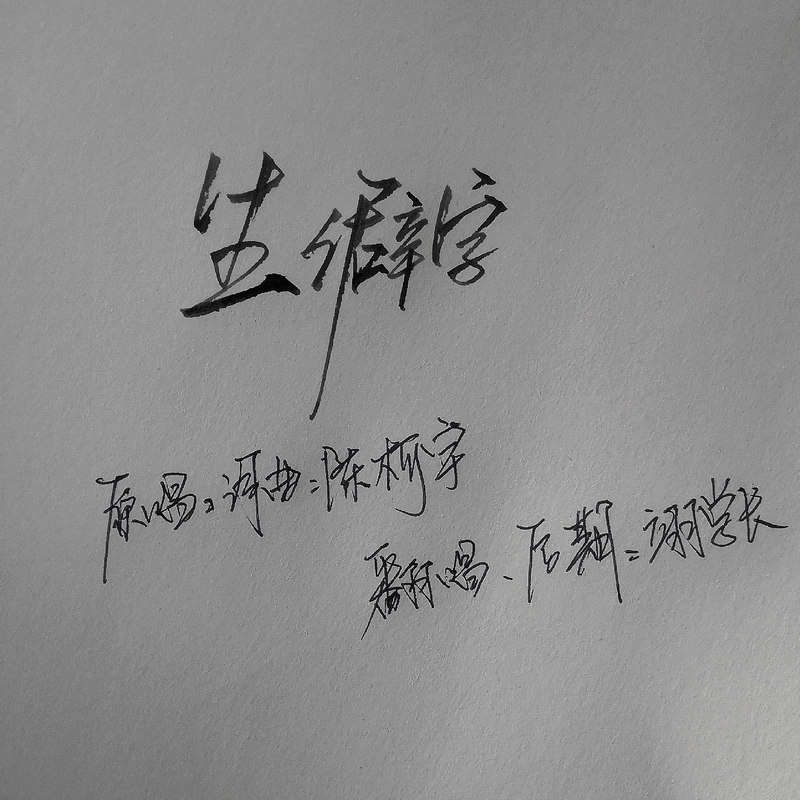 生僻字
原唱、词曲：陈柯宇
翻唱、后期：翊学长